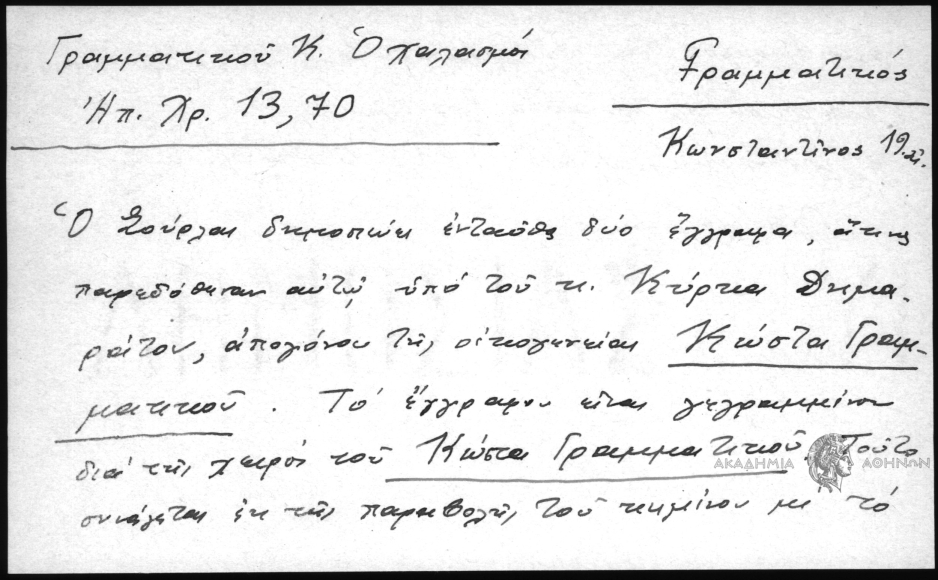 Γραμματικοῦ Κ. Ὁ χαλασμός
Ἠπ. Χρ. 13,70
Γραμματικός
Κωνσταντῖνος 19 αἰ.
Ὁ Σούρλας δημοσιεύει ἐνταῦθα δύο ἔγγραφα, ἅτινα
παρεδόθησαν αὐτῷ ὑπό τοῦ κ. Κύρκα Δημα-
ράτου, ἀπογόνου τῆς οἰκογενείας Κώστα Γραμ-
ματικοῦ. Τό ἔγγραφον εἶναι γεγραμμένον
διά τῆς χειρός τοῦ Κώστα Γραμματικοῦ. Τοῦτο
συνάγεται ἐκ τῆς παραβολῆς τοῦ κειμένου μέ τό
ΑΚΑΔΗΜΙΑ ΑΘΗΝΩΝ